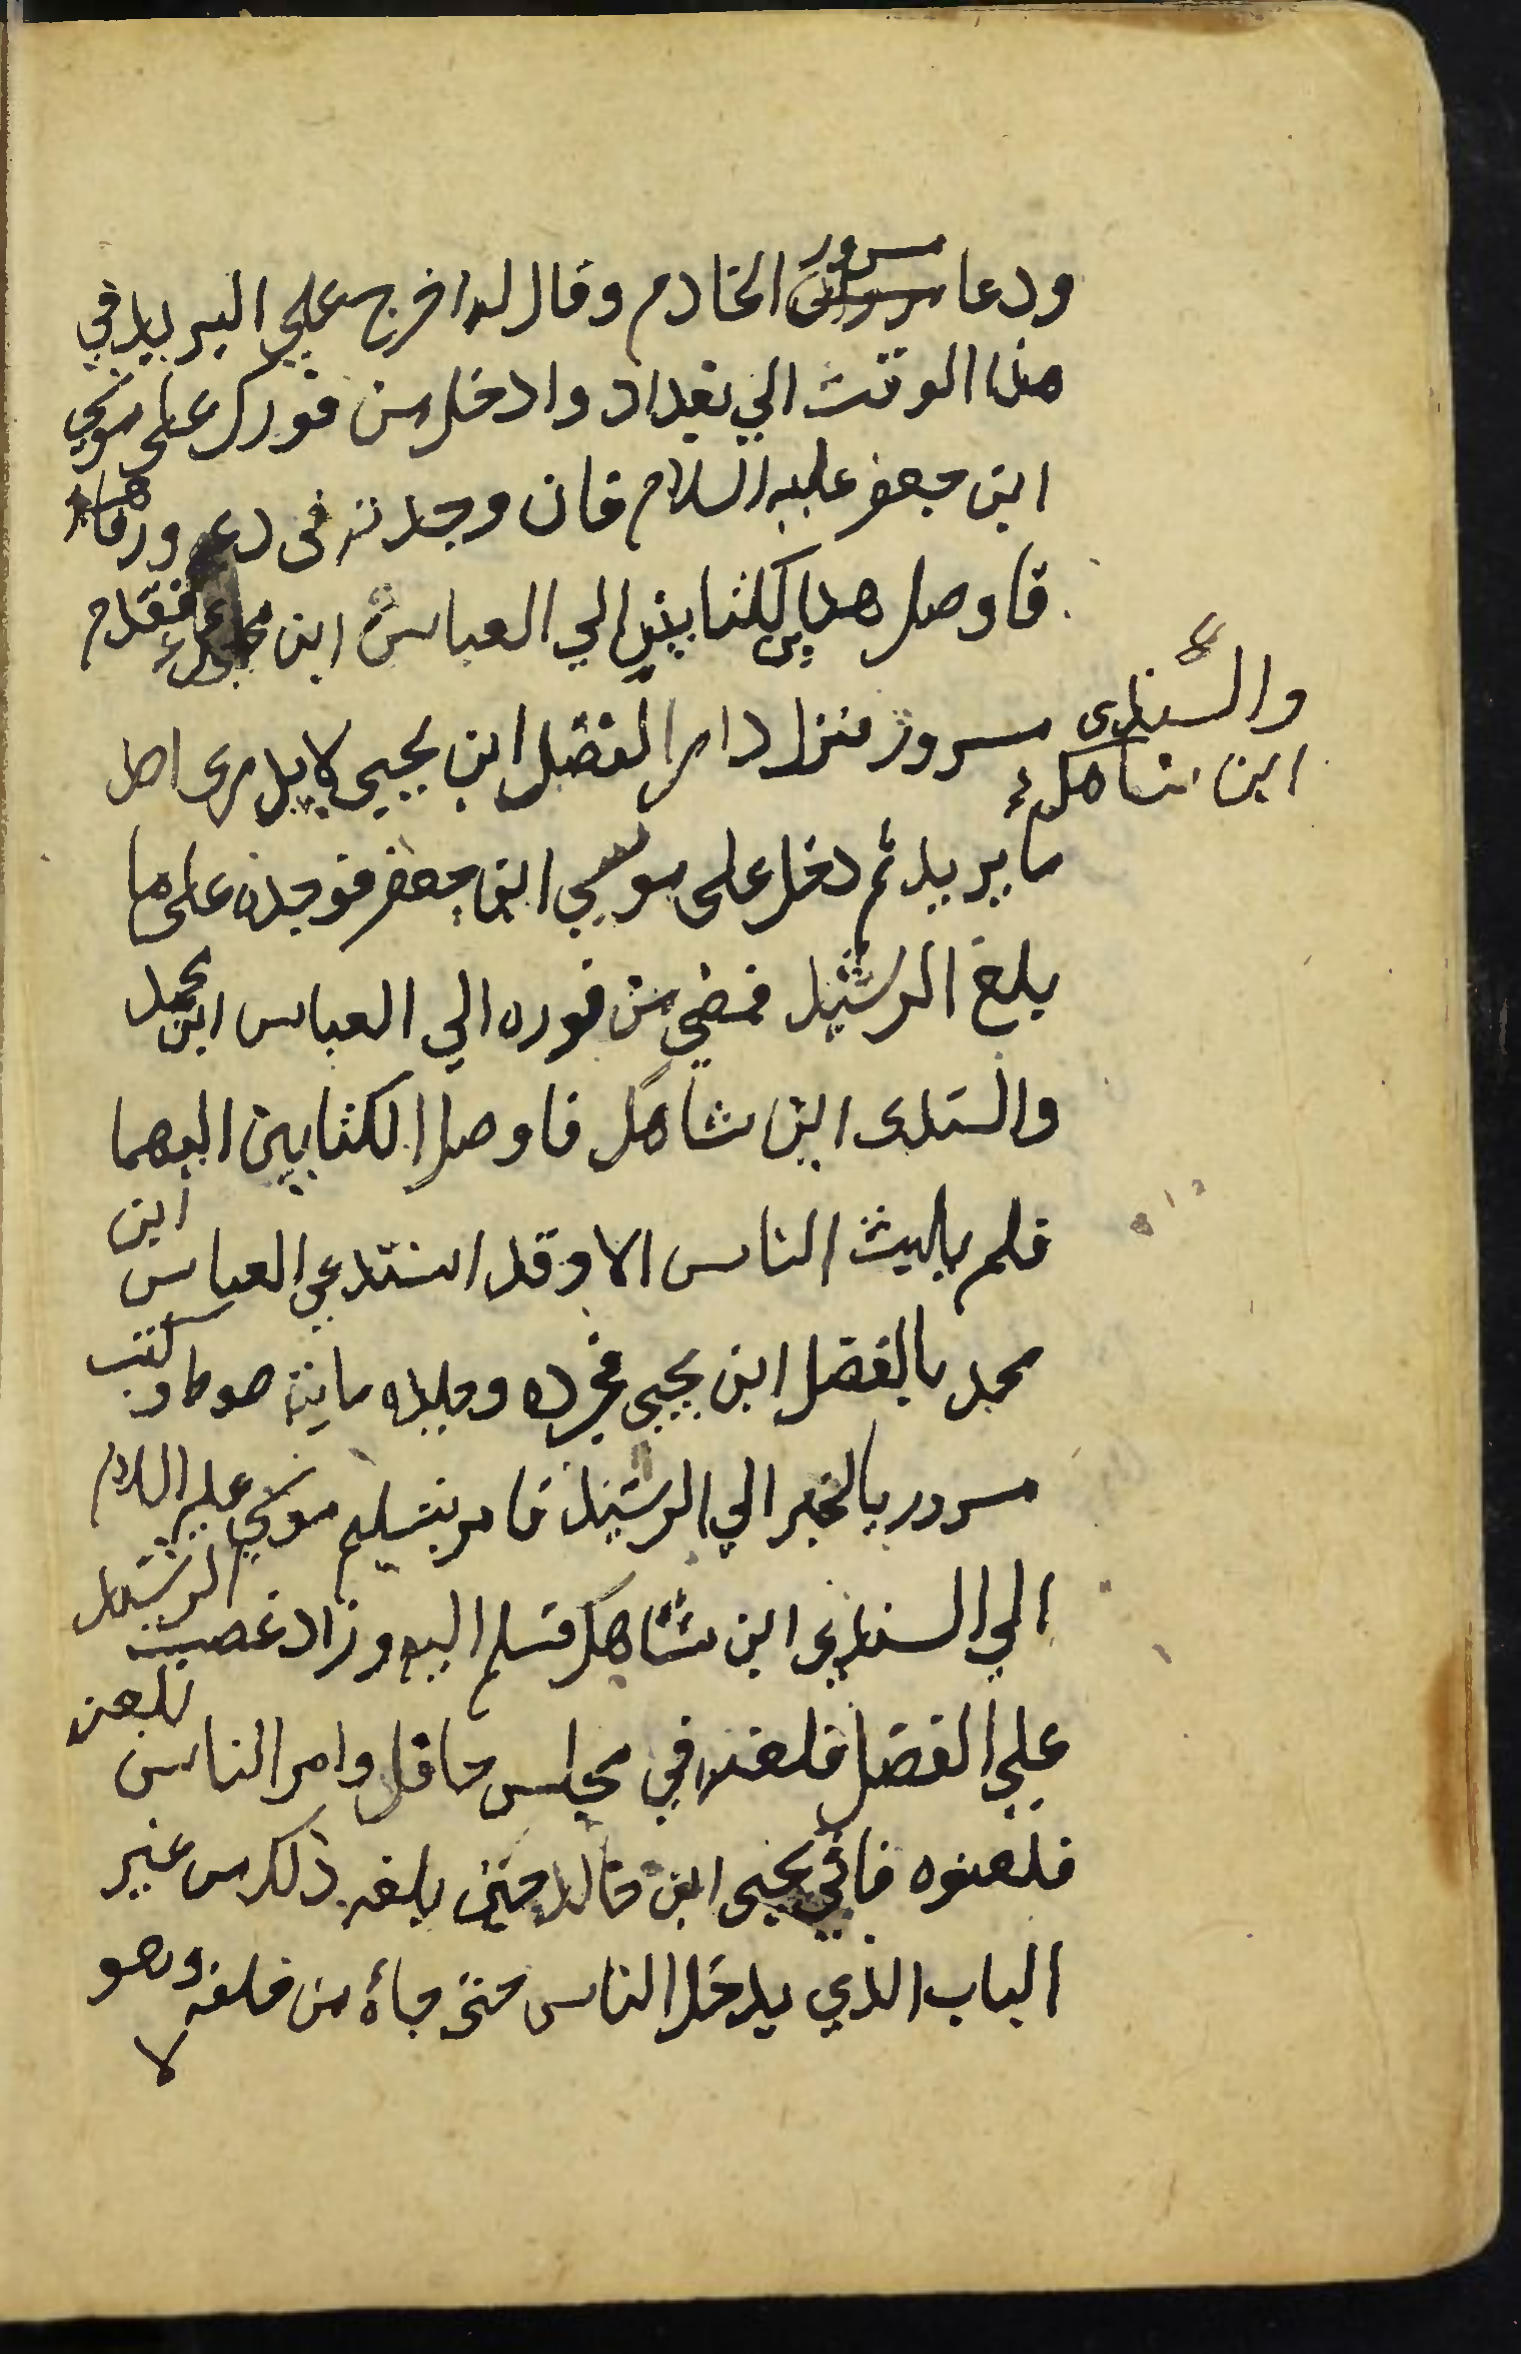 ودعا مسرور الخادم وقال له اخرج علي البريد في
هذا الوقت الي بغداد وادخل من فورك على موسي
ابن جعفر عليه السلام فان وجدته في دعه ورفاهيه
فاوصل هذاين الكتابين الي العباس ابن محمد فقدم
والسندى
ابن شاهك
مسرور فنزل دار الفضل ابن يحيي لا يدرى احد
ما يريد ثم دخل على موسي ابن جعفر فوجده على ما
بلغ الرشيد فمضي من فوره الي العباس ابن محمد
والسندى ابن شاهك فاوصل الكتابين اليهما
فلم يلبث الناس الا وقد استدعي العباس ابن
محمد بالفضل ابن يحيي فجرده وجلده ماية صوط وكتب
مسرور بالخبر الي الرشيد فامر بتسليم موسي عليه السلام
الي السندي ابن شاهك فسلم اليه وزاد غضب الرشيد
علي الفضل فلعنه في مجلس حافل وامر الناس بلعنه
فلعنوه فاتي يحيى ابن خالد حين بلغه ذلك من غير
الباب الذي يدخل الناس حتى جاءه من خلفه وهو
لا